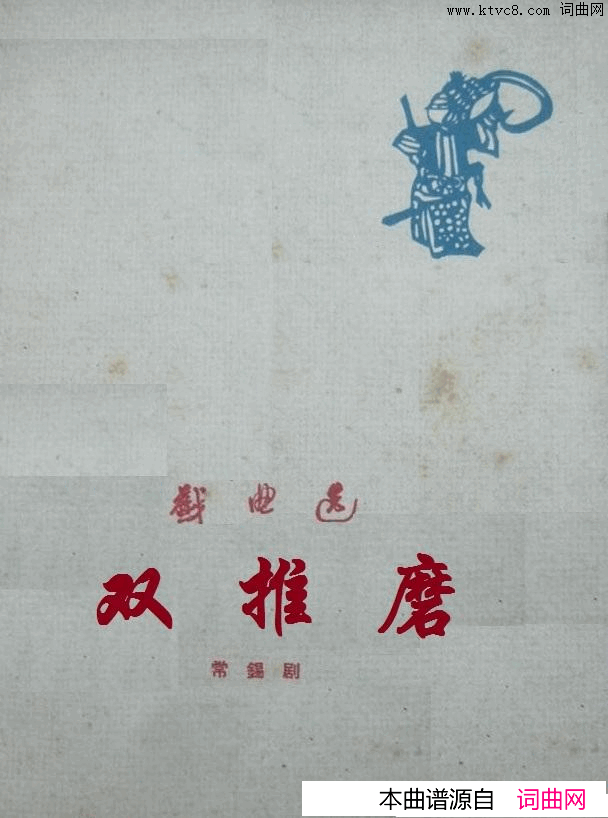 www.ktvc8.com 词曲网
戯曲选
双推磨
常錫剧
本曲谱源自 词曲网